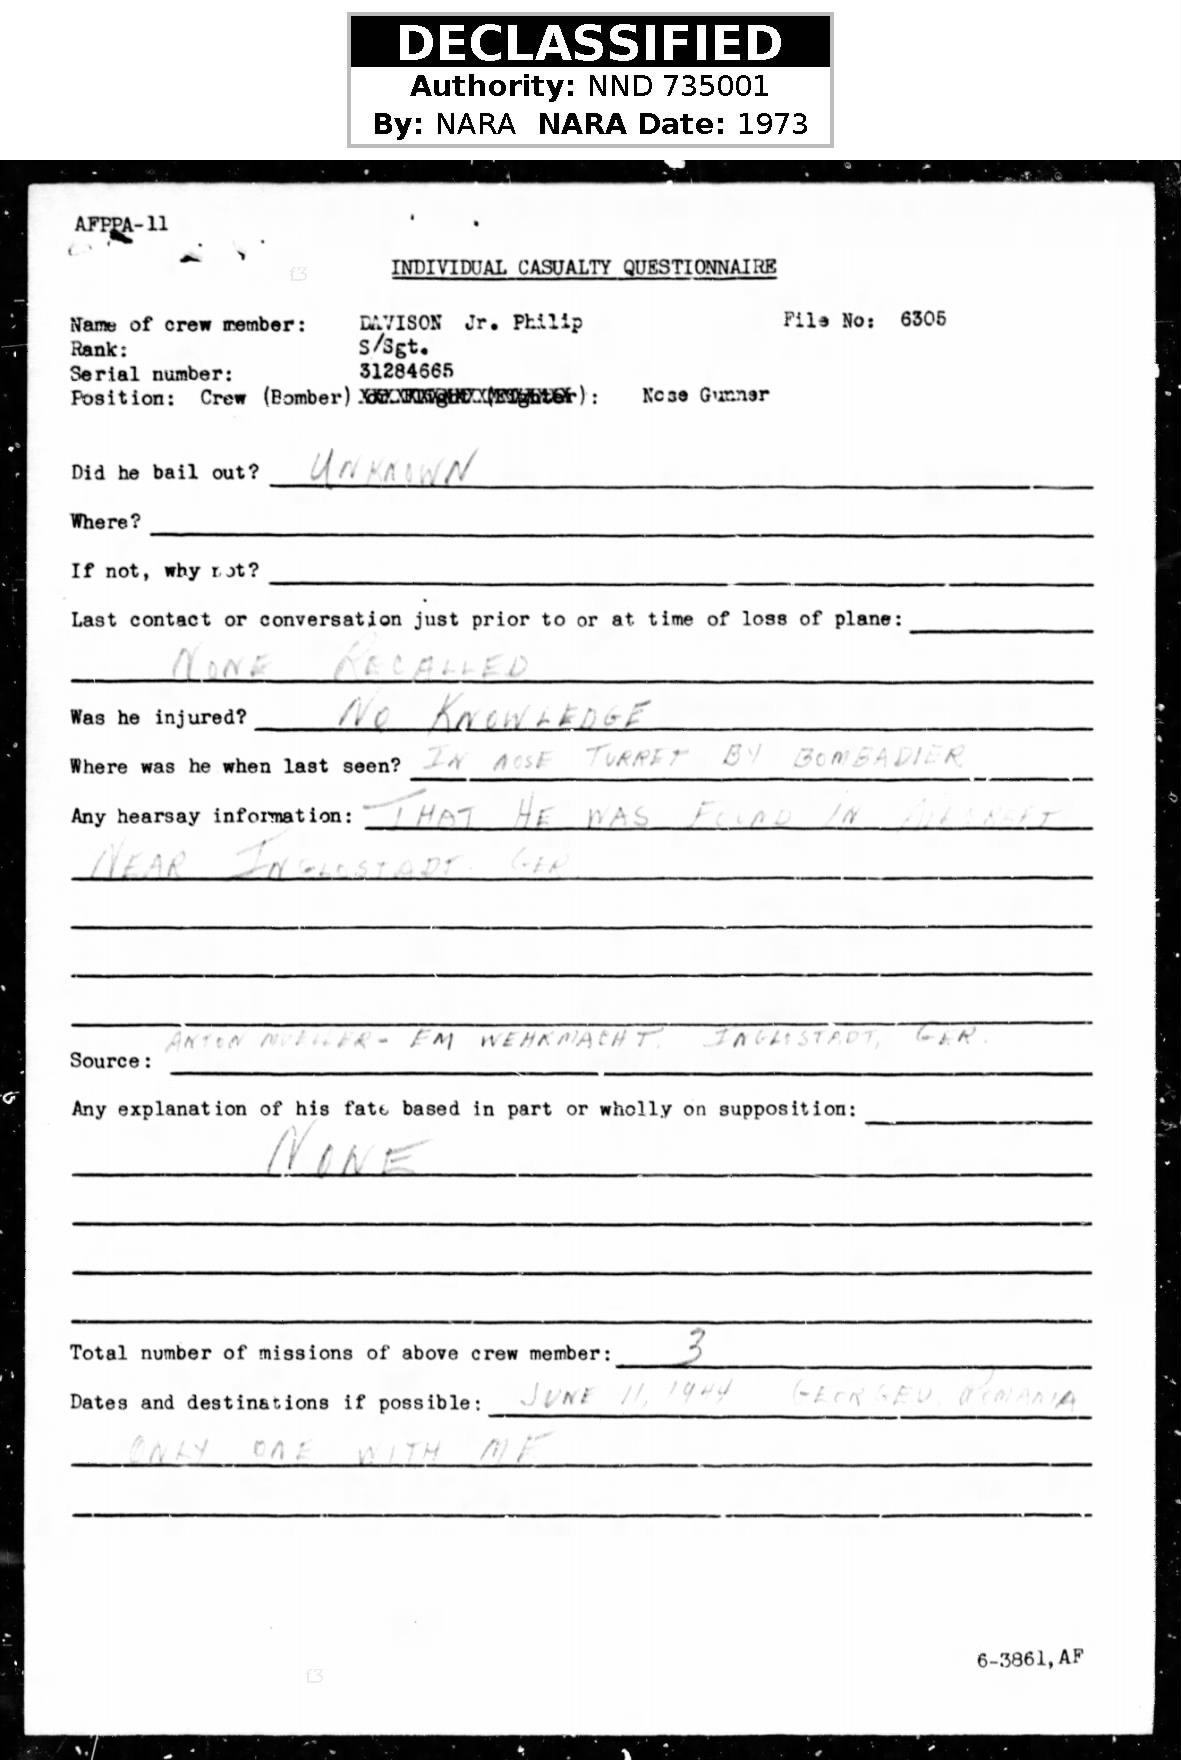 DECLASSIFIED
Authority: NND 735001
By: NARA NARA Date: 1973
AFPPA-11
INDIVIDUAL CASUALTY QUESTIONNAIRE
Name of crew member: DAVISON Jr. Philip File No: 6305
Rank: S/Sgt.
Serial number: 31284665
Position: Crew (Bomber) ): Nose Gunner
Did he bail out? UNKNOWN
Where?
If not, why not?
Last contact or conversation just prior to or at time of loss of plane:
NONE RECALLED
Was he injured? NO KNOWLEDGE
Where was he when last seen? IN NOSE TURRET BY BOMBADIER
Any hearsay information: THAT HE WAS FOUND IN AIRCRAFT
NEAR INGLOSTADT. GER
ANTON MUELLER - EM WEHRMACHT. INGLOSTADT, GER.
Source:
Any explanation of his fate based in part or wholly on supposition:
NONE
Total number of missions of above crew member: 3
Dates and destinations if possible: JUNE 11, 1944 GEORGEU, ROMANIA
ONLY ONE WITH ME
6-3861, AF